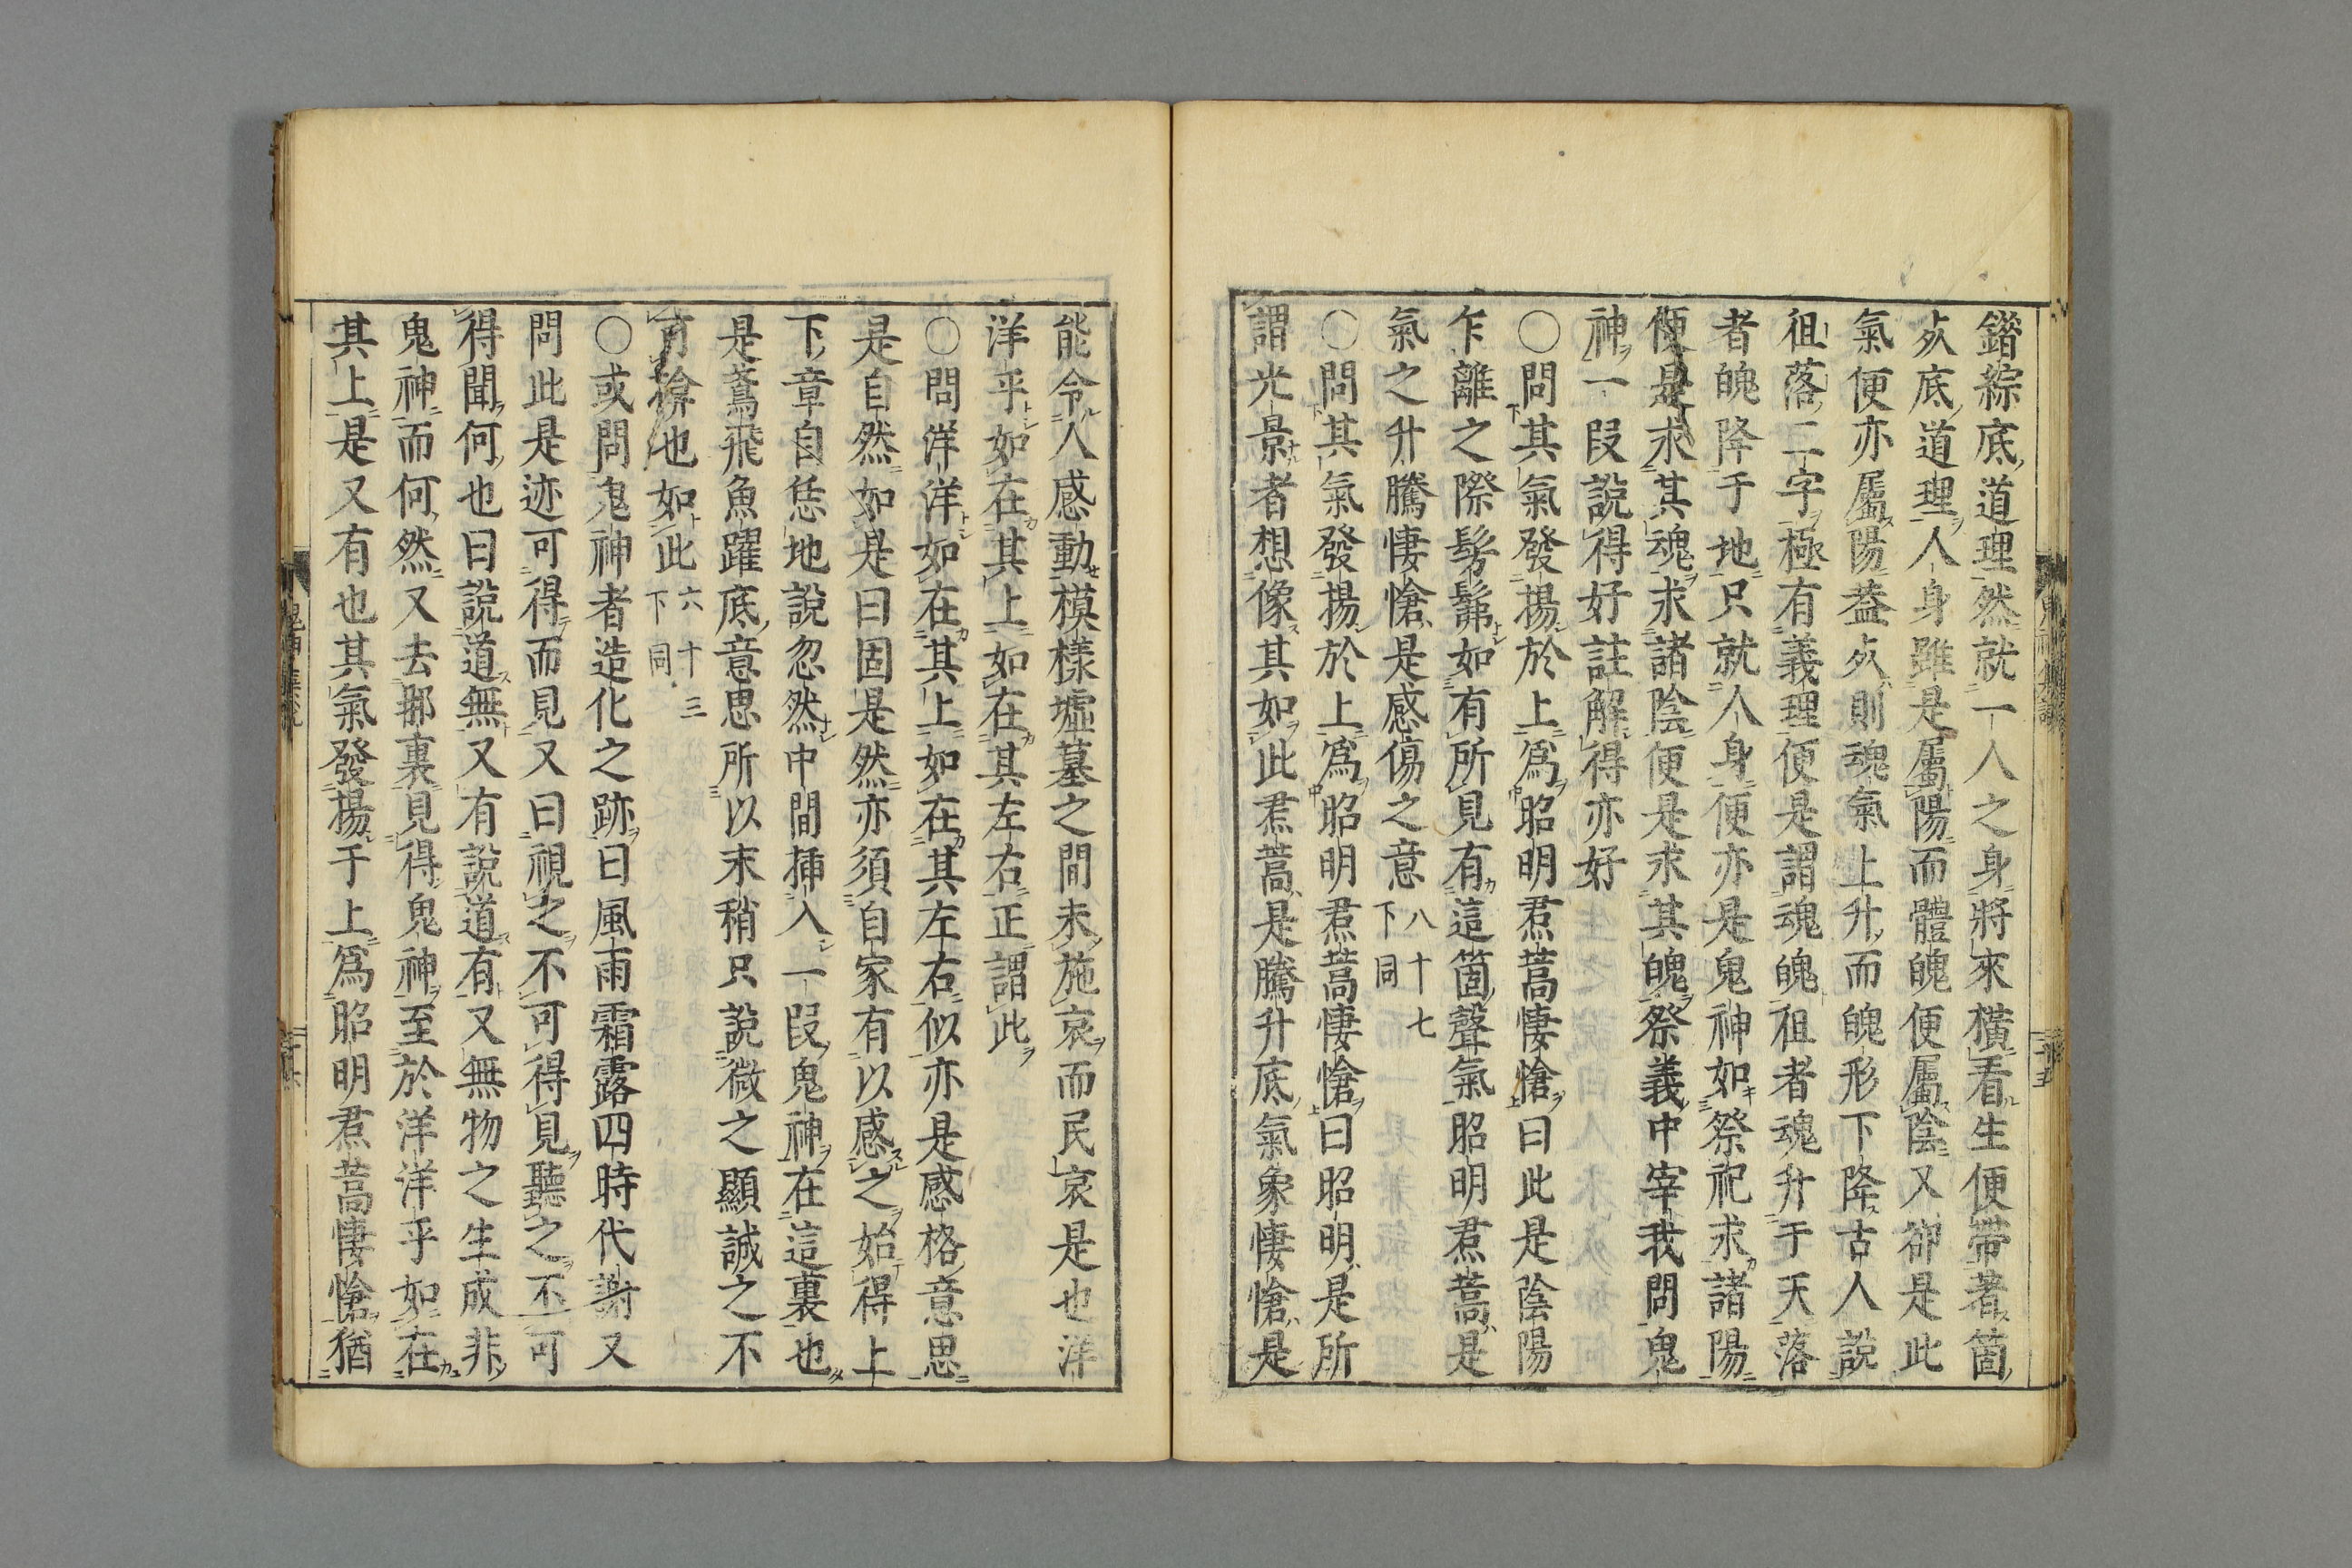 錯綜底道理然就一人之身將來橫看生便帶著箇
死底道理人身雖是屬陽而體魄便屬陰又卻是此
氣便亦屬陽蓋死則魂氣上升而魄形下降古人說
徂落二字極有義理便是謂魂魄徂者魂升于天落
者魄降于地只就人身便亦是鬼神如祭祀求諸陽
便是求其魂求諸陰便是求其魄祭義中宰我問鬼
神一段說得好註解得亦好
○問其氣發揚於上爲昭明焄蒿悽愴曰此是陰陽
乍離之際髣髴如有所見有這箇聲氣昭明焄蒿是
氣之升騰悽愴是感傷之意八十七下同
○問其氣發揚於上爲昭明焄蒿悽愴曰昭明是所
謂光景者想像其如此焄蒿是騰升底氣象悽愴是
能令人感動模樣墟墓之間未施哀而民哀是也洋
洋乎如在其上如在其左右正謂此
○問洋洋如在其上如在其左右似亦是感格意思
是自然如是曰固是然亦須自家有以感之始得上
下章自恁地說忽然中間插入一段鬼神在這裏也
是鳶飛魚躍底意思所以末稍只說微之顯誠之不
可揜也如此六十三下同
○或問鬼神者造化之跡曰風雨霜露四時代謝又
問此是迹可得而見又曰視之不可得見聽之不可
得聞何也曰說道無又有說道有又無物之生成非
鬼神而何然又去那裏見得鬼神至於洋洋乎如在
其上是又有也其氣發揚于上爲昭明焄蒿悽愴猶